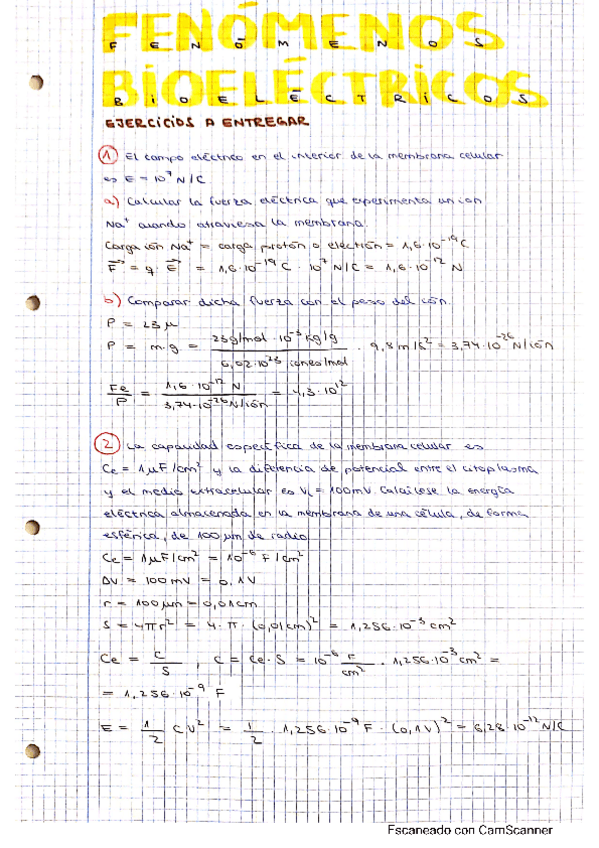 FENÓMENOS
BIOELÉCTRICOS
EJERCICIOS A ENTREGAR
1 El campo eléctrico en el interior de la membrana celular
es E = 10⁷ N/C
a) Calcular la fuerza eléctrica que experimenta un ion
Na⁺ cuando atraviesa la membrana.
Carga ión Na⁺ = carga protón o electrón = 1,6·10⁻¹⁹ C
F = q · E = 1,6·10⁻¹⁹ C · 10⁷ N/C = 1,6·10⁻¹² N
b) Comparar dicha fuerza con el peso del ión.
P = 23 μ
P = m·g = 23g/mol · 10⁻³ kg/g / 6,02·10²³ iones/mol · 9,8 m/s² = 3,74·10⁻²⁶ N/ión
Fe/P = 1,6·10⁻¹² N / 3,74·10⁻²⁶ N/ión = 4,3·10¹²
2 La capacidad específica de la membrana celular es
Ce = 1μF/cm² y la diferencia de potencial entre el citoplasma
y el medio extracelular es = 100mV. Calcúlese la energía
eléctrica almacenada en la membrana de una célula, de forma
esférica, de 100 μm de radio
Ce = 1μF/cm² = 10⁻⁶ F/cm²
ΔV = 100 mV = 0,1V
r = 100μm = 0,01cm
S = 4πr² = 4·π·(0,01cm)² = 1,256·10⁻³ cm²
Ce = C/S , C = Ce·S = 10⁻⁶ F/cm² · 1,256·10⁻³ cm² =
= 1,256·10⁻⁹ F
E = 1/2 C V² = 1/2 · 1,256·10⁻⁹ F · (0,1V)² = 6,28·10⁻¹² N/C
Escaneado con CamScanner